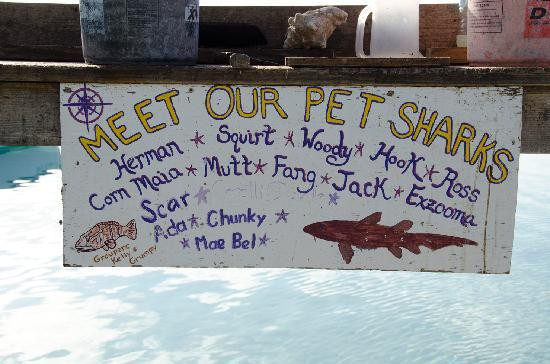 MEET OUR PET SHARKS
Herman Squirt Woody Hook Ross
Corn Maia Mutt Fang Jack Exzooma
Scar
Ada Chunky
Mae Bel
Groupers
Kelly &
Grumpy